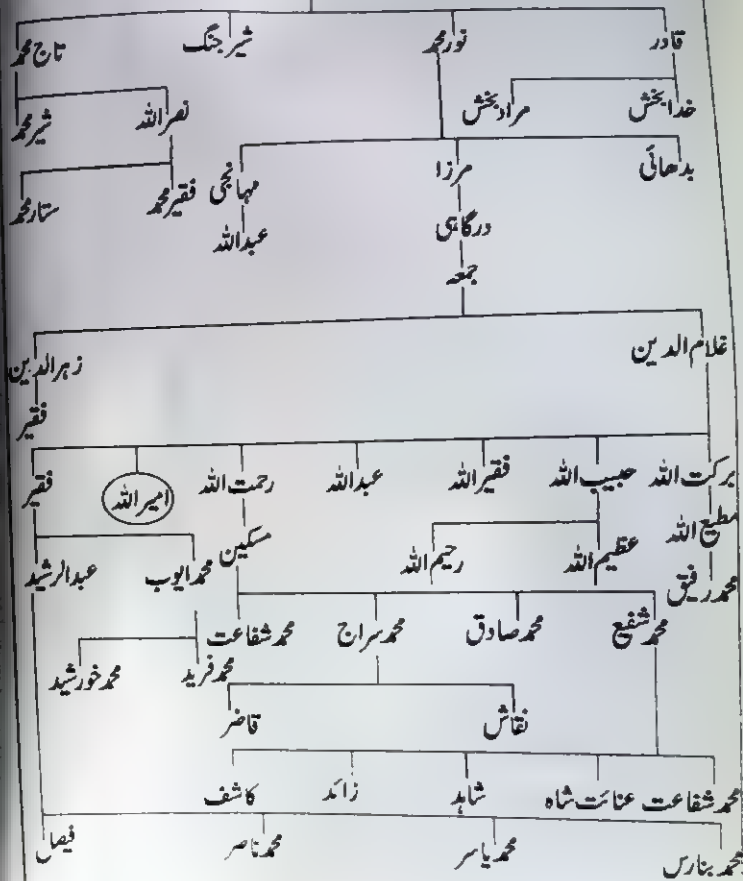 قادر نور محمد شیر جنگ تاج محمد
خدا بخش مراد بخش نصر اللہ شیر محمد
بدھائی مرزا مہانجی فقیر محمد ستار محمد
درگاہی عبد اللہ
جمعہ
غلام الدین زہر الدین
فقیر
برکت اللہ حبیب اللہ فقیر اللہ عبد اللہ رحمت اللہ امیر اللہ فقیر
مطیع اللہ عظیم اللہ رحیم اللہ مسکین محمد ایوب عبد الرشید
محمد رفیق
محمد شفیع محمد صادق محمد سراج محمد شفاعت محمد فرید محمد خورشید
نقاش قاضر
محمد شفاعت عنائت شاہ شاہد زائد کاشف
محمد بنارس محمد یاسر محمد ناصر فیصل